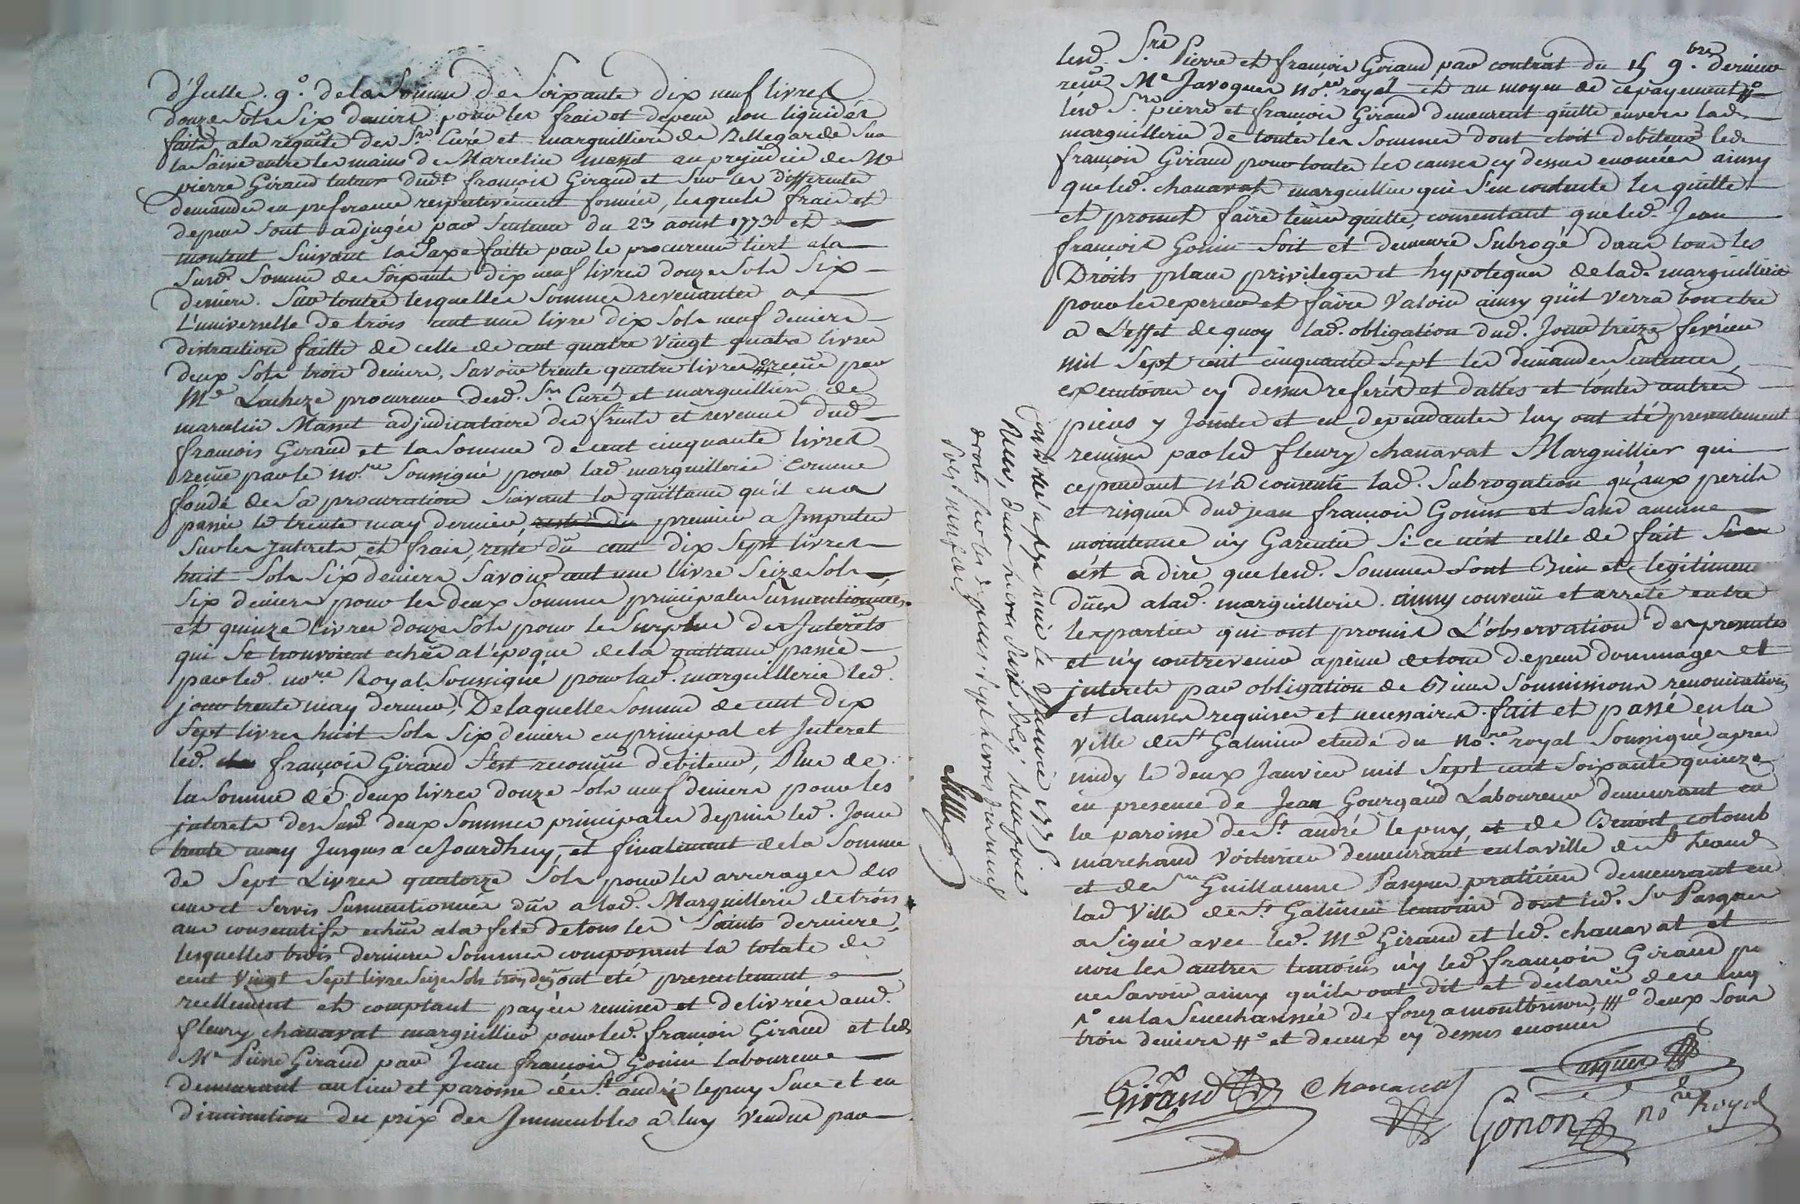 d'Icelle. 9° de la Somme de Soixante dix neuf livres
douze Sols Six deniers pour les frais et depens non liquidés
faits a la requête des Srs Curé et marguilliers de Bellegarde Sur
la Saisie entre les mains de Marcelin Massot au prejudice de Me
pierre Giraud tuteur dudt. françois Giraud et Sur les differentes
demandes en preference respectivement formées, lesquels frais et
depens Sont adjugés par Sentence du 23 aoust 1773 et
montent Suivant la Taxe faitte par le procureur tiers a la
Susd. Somme de Soixante dix neuf livres douze Sols Six
deniers. Sur toutes lesquelles Sommes revenantes a
L'universelle de trois cent une livre dix Sols neuf deniers
distraction faitte de celle de cent quatre vingt quatre livres
deux Sols trois deniers, Savoir trente quatre livres reçue par
Me Lacheze procureur desd. Srs Curé et marguilliers de
marcelin Massot adjudicataire des fruits et revenus dud.
françois Giraud et la Somme de cent cinquante livres
reçüe par le nore. Soussigné pour lad. marguillerie comme
fondé de Sa procuration Suivant la quittance qu'il en a
passée le trente may dernier premier a Imputer
Sur les Interets et frais, reste dû cent dix Sept livres
huit Sols Six deniers, Savoir cent une livre Seize Sols
Six deniers pour les deux Sommes principales Susmentionnées
et quinze livres douze Sols pour le Surplus des Interêts
qui Se trouvoient echüs a l'époque de la quittance passée
par led. nore Royal Soussigné pour lad. marguillerie led.
jour trente may dernier, De laquelle Somme de cent dix
Sept livres huit Sols Six deniers en principal et Interet
led. françois Giraud S'est reconnu debiteur, Plus de
la Somme de deux livres douze Sols neuf deniers pour les
jnterets des Susd. deux Sommes principales depuis led. Jour
trente may Jusques a ce Jourdhuy, et finalement de la Somme
de Sept Livres quatorze Sols pour les arrerages des
cens et Servis Susmentionnés dûs a lad. Marguillerie de trois
ans consecutifs echus a la fete de tous les Saints derniere,
lesquelles trois dernieres Sommes composent la totale de
cent Vingt Sept livre Seize Sols trois drs ont été presentement
reellement et comptant payées remises et delivrées aud.
fleury chanavat marguillier pour led. françois Giraud et led.
Me Pierre Giraud par Jean françois Gonin laboureur
demeurant au lieu et paroisse de St. andré lepuy Sur et en
diminution du prix des Immeubles a luy Vendus par
Controllé a
neuf, droit
Soit neuf
lesd. Srs Pierre et françois Giraud par contrat du 15 9bre. dernier
reçu Me Javogues nore royal et au moyen de ce payement
lesd Srs pierre et françois Giraud demeurent quitte envers lad.
marguillerie de toutes les Sommes dont etoit debiteur led.
françois Giraud pour toutes les causes cy dessus enoncées ainsy
que led. chanavat marguillier qui S'en contente les quitte
et promet faire tenir quitte, consentant que led. Jean
françois Gonin Soit et demeure Subrogé dans tous les
Droits places privileges et hypoteques de lad. marguillerie
pour les exercer et faire Valoir ainsy qu'il verra bon etre
a L'effet de quoy lad. obligation dud. Jour treize fevrier
mil Sept cent cinquante Sept les demandes Sentences,
executoire cy dessus referés et dattés et toutes autres
pieces y Jointes et en dependantes luy ont été presentement
remises par led fleury chanavat Marguillier qui
cependant n'a consenti lad. Subrogation qu'aux perils
et risques dud jean françois Gonin et Sans aucune
maintenue n'y Garentie Si ce n'est celle de fait
cest a dire que lesd. Sommes Sont Bien et légitimement
dües a lad. marguillerie. ainsy convenü et arreté entre
les parties qui ont promis L'observation des presentes
et n'y contrevenir a peine de tous depens dommages et
jnterets par obligation de biens Soumissions renonciations
et clauses requises et necessaires. fait et passé en la
Ville de St Galmier etude du nore royal Soussigné apres
midy le deux Janvier mil Sept cent Soixante quinze
en presence de Jean Gourgaud Laboureur demeurant en
la paroisse de St. andré lepuy, et de Benoit colomb
marchand voiturier demeurant en la ville de St heand
et de Sr Guillaume Pasquer praticien demeurant en
lad Ville de St. Galmier temoins dont led. Sr Pasquer
a Signé avec led. Me Giraud et led. chanavat et
non les autres temoins n'y led françois Giraud pr
ne Savoir ainsy qu'ils ont dit et déclaré de ce enquis
en la Senechaussée de forez a montbrison, deux Sous
trois deniers et deceux cy dessus enoncés
Giraud Chanavat Pasquer
Gonon nore Royal